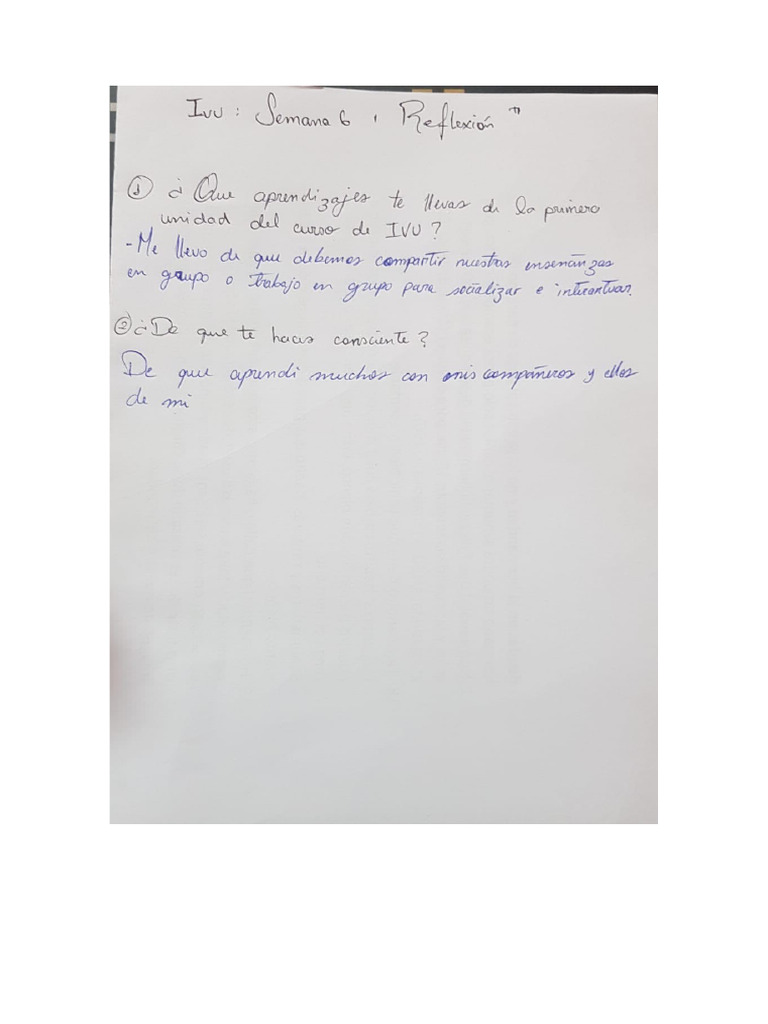 IVU : Semana 6 , Reflexión "
① ¿ Que aprendizajes te llevas de la primera
unidad del curso de IVU ?
- Me llevo de que debemos compartir nuestras enseñanzas
en grupo o trabajo en grupo para socializar e interactuar.
② ¿ De que te haces consciente ?
De que aprendi muchos con mis compañeros y ellos
de mi